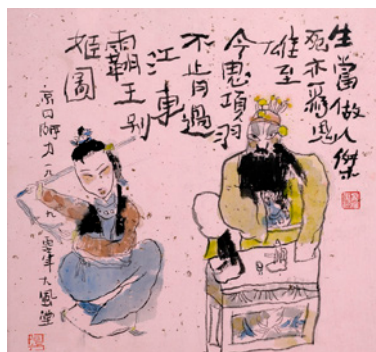 生當做人傑
死亦爲鬼
雄至
今思項羽
不肯過
江東
霸王别
姬圖
京口 一九 九 年大風堂